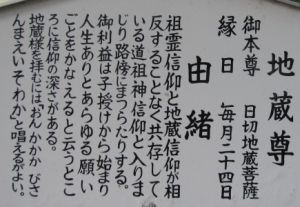 地蔵尊
御本尊 日切地蔵菩薩
縁日 毎月二十四日
由緒
祖霊信仰と地蔵信仰が相
反することなく共存して
いる道祖神信仰と入りま
じり路傍にまつらたりする。
御利益は子授けから始まり
人生ありとあらゆる願い
ごとをかなえると云うとこ
ろに信仰の深さがある。
地蔵様を拝むには、おんかかか びさ
んまえい そわか」と唱えるがよい。